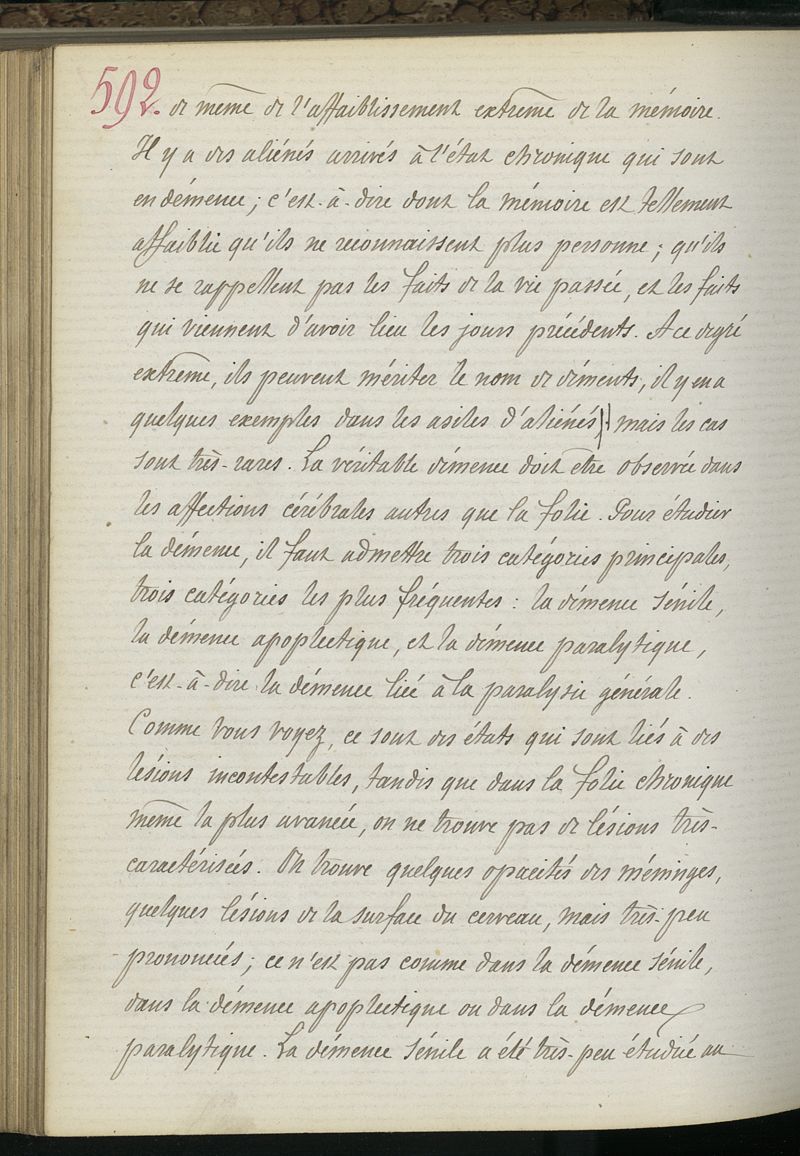 592.
de même de l'affaiblissement extrême de la mémoire.
Il y a des aliénés arrivés à l'état chronique qui sont
en démence ; c'est-à-dire dont la mémoire est tellement
affaiblie qu'ils ne reconnaissent plus personne ; qu'ils
ne se rappellent pas les faits de la vie passée, et les faits
qui viennent d'avoir lieu les jours précédents. A ce degré
extrême, ils peuvent mériter le nom de déments, il y en a
quelques exemples dans les asiles d'aliénés, mais les cas
sont très-rares. La véritable démence doit être observée dans
les affections cérébrales autres que la folie. Pour étudier
la démence, il faut admettre trois catégories principales,
trois catégories les plus fréquentes : la démence sénile,
la démence apoplectique, et la démence paralytique,
c'est-à-dire la démence liée à la paralysie générale.
Comme vous voyez, ce sont des états qui sont liés à des
lésions incontestables, tandis que dans la folie chronique
même la plus avancée, on ne trouve pas de lésions très-
caractérisées. On trouve quelques opacités des méninges,
quelques lésions de la surface du cerveau, mais très-peu
prononcées ; ce n'est pas comme dans la démence sénile,
dans la démence apoplectique ou dans la démence
paralytique. La démence sénile a été très-peu étudiée au